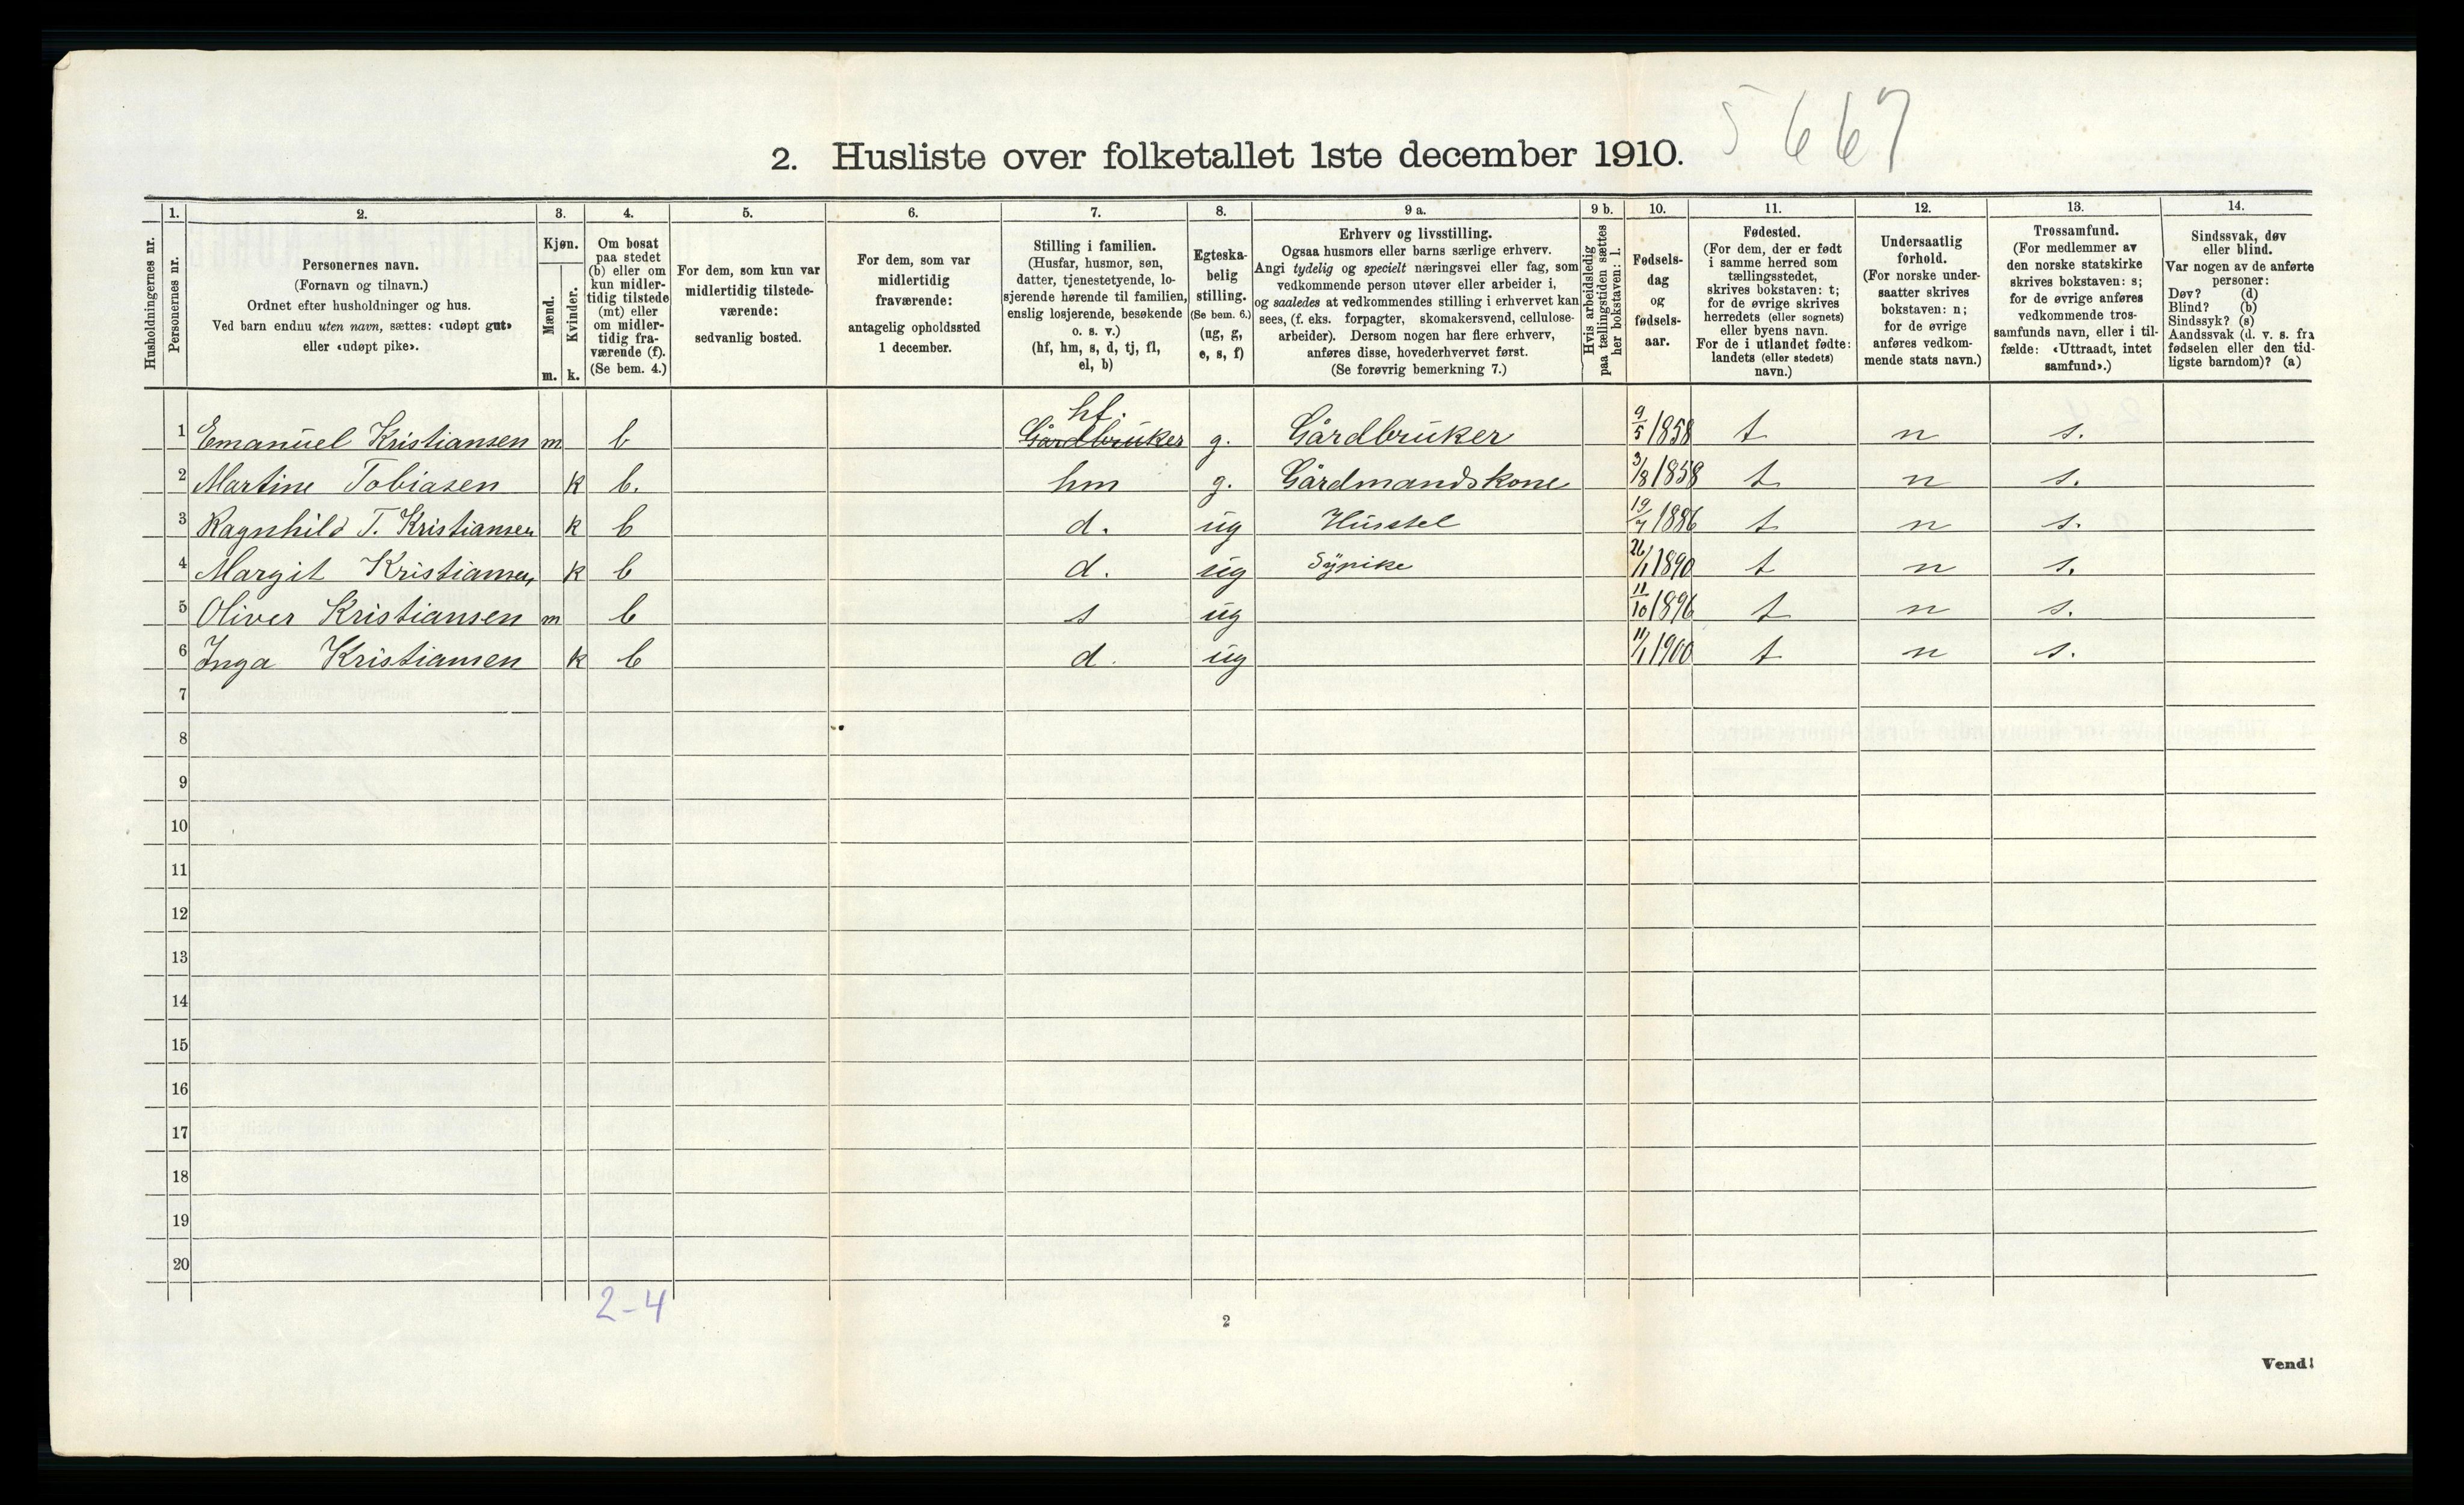 5667
2. Husliste over folketallet 1ste december 1910.
Husholdningernes nr.
1. Personernes nr.
2. Personernes navn.
(Fornavn og tilnavn.)
Ordnet efter husholdninger og hus.
Ved barn endnu uten navn, sættes: «udøpt gut»
eller «udøpt pike».
3. Kjøn.
Mænd. m.
Kvinder. k.
4. Om bosat
paa stedet
(b) eller om
kun midler-
tidig tilstede
(mt) eller
om midler-
tidig fra-
værende (f).
(Se bem. 4.)
5. For dem, som kun var
midlertidig tilstede-
værende:
sedvanlig bosted.
6. For dem, som var
midlertidig
fraværende:
antagelig opholdssted
1 december.
7. Stilling i familien.
(Husfar, husmor, søn,
datter, tjenestetyende, lo-
sjerende hørende til familien,
enslig losjerende, besøkende
o. s. v.)
(hf, hm, s, d, tj, fl,
el, b)
8. Egteska-
belig
stilling.
(Se bem. 6.)
(ug, g,
e, s, f)
9 a. Erhverv og livsstilling.
Ogsaa husmors eller barns særlige erhverv.
Angi tydelig og specielt næringsvei eller fag, som
vedkommende person utøver eller arbeider i,
og saaledes at vedkommendes stilling i erhvervet kan
sees, (f. eks. forpagter, skomakersvend, cellulose-
arbeider). Dersom nogen har flere erhverv,
anføres disse, hovederhvervet først.
(Se forøvrig bemerkning 7.)
9 b. Hvis arbeidsledig
paa tællingstiden sættes
her bokstaven: l.
10. Fødsels-
dag
og
fødsels-
aar.
11. Fødested.
(For dem, der er født
i samme herred som
tællingsstedet,
skrives bokstaven: t;
for de øvrige skrives
herredets (eller sognets)
eller byens navn.
For de i utlandet fødte:
landets (eller stedets)
navn.)
12. Undersaatlig
forhold.
(For norske under-
saatter skrives
bokstaven: n;
for de øvrige
anføres vedkom-
mende stats navn.)
13. Trossamfund.
(For medlemmer av
den norske statskirke
skrives bokstaven: s;
for de øvrige anføres
vedkommende tros-
samfunds navn, eller i til-
fælde: «Uttraadt, intet
samfund».)
14. Sindssvak, døv
eller blind.
Var nogen av de anførte
personer:
Døv? (d)
Blind? (b)
Sindssyk? (s)
Aandssvak (d. v. s. fra
fødselen eller den tid-
ligste barndom)? (a)
hf.
1 Emanuel Kristiansen m b Gårdbruker g. Gårdbruker 9/5 1858 t n s.
2 Martine Tobiasen k b. hm g. Gårdmandskone 3/8 1858 t n s.
3 Ragnhild T. Kristiansen k b d. ug Husstel 19/7 1886 t n s.
4 Margit Kristiansen k b d. ug Sypike 26/1 1890 t n s.
5 Oliver Kristiansen m b s ug 11/10 1896 t n s.
6 Inga Kristiansen k b d. ug 11/1 1900 t n s.
7
8
9
10
11
12
13
14
15
16
17
18
19
20
2-4
2
Vend!